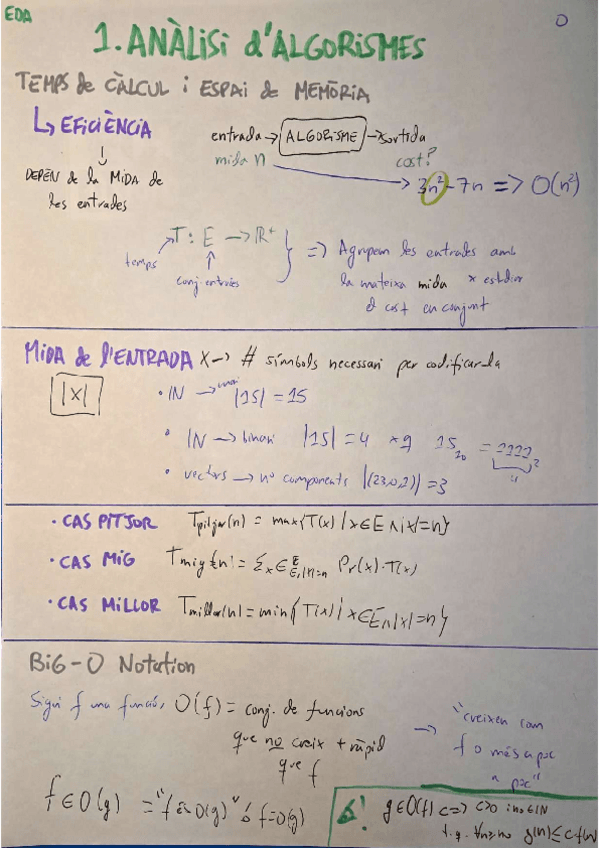 EDA
0
1. ANÀLISI d'ALGORISMES
TEMPS de CÀLCUL i ESPAI de MEMÒRIA
↳ EFICIÈNCIA
↓
DEPÈN de la MIDA de
les entrades
entrada → ALGORISME → sortida
mida n
cost?
→ 3n² - 7n => O(n²)
T: E → ℝ⁺
temps
conj. entrades
=> Agrupem les entrades amb
la mateixa mida x estudiar
el cost en conjunt
MIDA de l'ENTRADA X → # símbols necessari per codificar-la
|X|
• ℕ → |15| = 15
• ℕ → binari |15| = 4 xq 15₁₀ = 1111₂
4
• vectors → nº components |(23,0,2)| = 3
• CAS PITJOR Tpitjor(n) = max{T(x) | x ∈ E ∧ |x| = n}
• CAS MIG Tmig(n) = Σx∈E,|x|=n Pr(x)·T(x)
• CAS MILLOR Tmillor(n) = min{T(x) | x ∈ E ∧ |x| = n}
BIG-O Notation
Sigui f una funció, O(f) = conj. de funcions
que no creix + ràpid
que f
→ "creixen com
f o més a poc
a poc"
f ∈ O(g) = "f és O(g)" ó f = O(g)
g ∈ O(f) <=> c>0 i n₀ ∈ ℕ
t.q. ∀n≥n₀ g(n) ≤ c f(n)